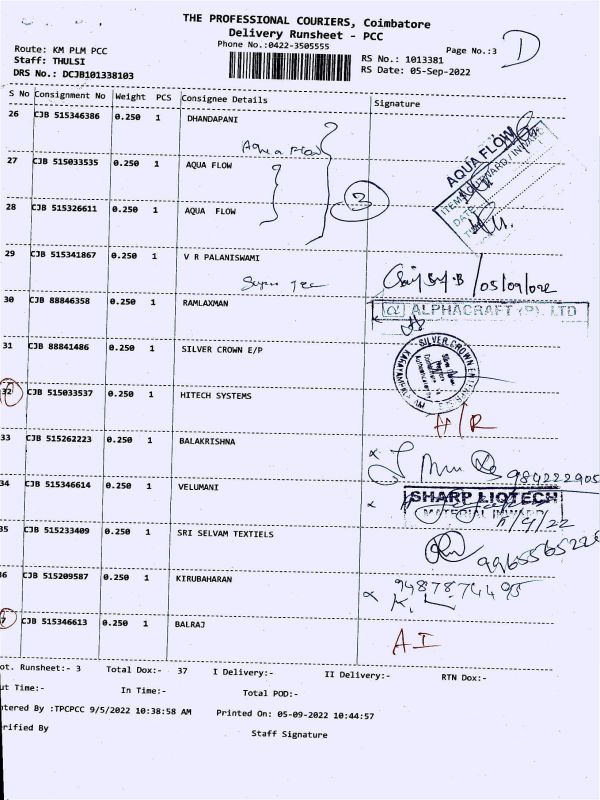 THE PROFESSIONAL COURIERS, Coimbatore
Delivery Runsheet - PCC
Phone No.:0422-3505555
Page No.:3 D
Route: KM PLM PCC
RS No.: 1013381
Staff: THULSI
RS Date: 05-Sep-2022
DRS No.: DCJB101338103
S No Consignment No Weight PCS Consignee Details Signature
26 CJB 515346386 0.250 1 DHANDAPANI
Aqua Flow
27 CJB 515033535 0.250 1 AQUA FLOW
AQUA FLOW
28 CJB 515326611 0.250 1 AQUA FLOW
DATE
29 CJB 515341867 0.250 1 V R PALANISWAMI
/05/09/022
30 CJB 88846358 0.250 1 RAMLAXMAN
ALPHACRAFT (P). LTD
31 CJB 88841486 0.250 1 SILVER CROWN E/P
SILVER CROWN
32 CJB 515033537 0.250 1 HITECH SYSTEMS
H/R
33 CJB 515262223 0.250 1 BALAKRISHNA
34 CJB 515346614 0.250 1 VELUMANI
SHARP LIQTECH
MATERIAL INWARD
35 CJB 515233409 0.250 1 SRI SELVAM TEXTIELS
36 CJB 515209587 0.250 1 KIRUBAHARAN
CJB 515346613 0.250 1 BALRAJ
AI
ot. Runsheet:- 3 Total Dox:- 37 I Delivery:- II Delivery:- RTN Dox:-
ut Time:- In Time:- Total POD:-
ntered By :TPCPCC 9/5/2022 10:38:58 AM Printed On: 05-09-2022 10:44:57
erified By Staff Signature